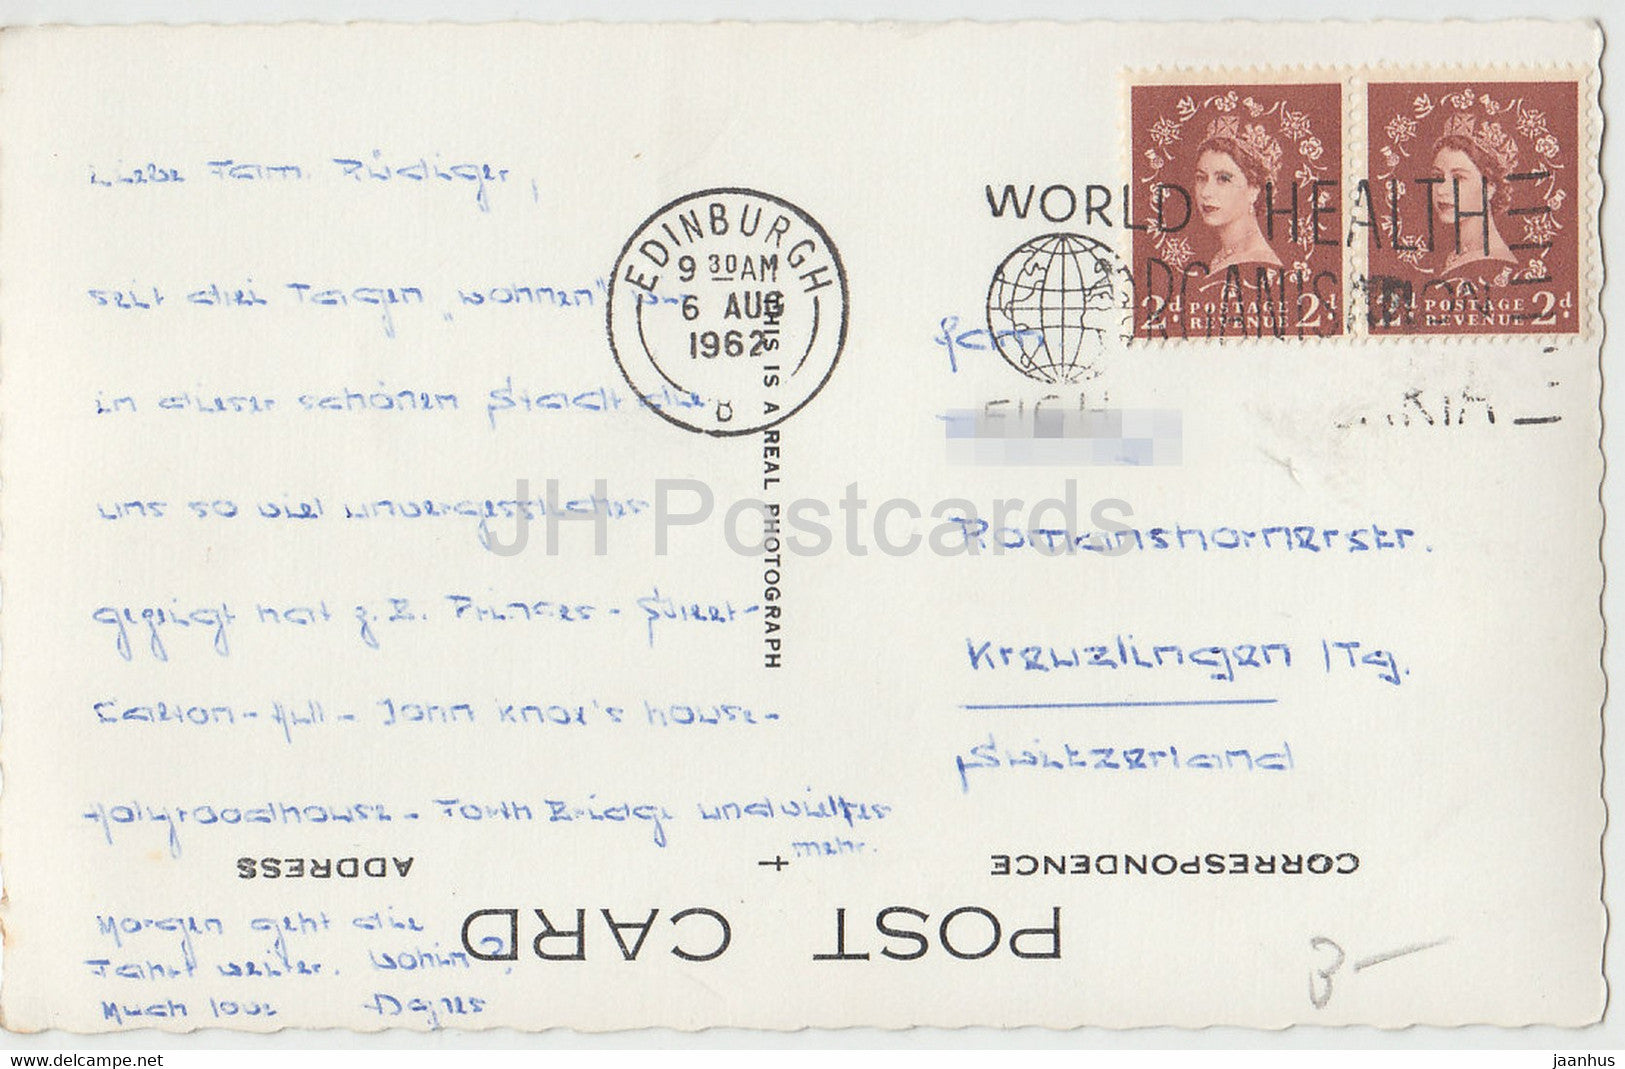 Liebe Fam. Rüdiger,
seit drei Tagen „wohnen" wir
in dieser schönen Stadt die
uns so viel unvergessliches
gezeigt hat z. B. Princes - Street -
Calton - Hill - John Knox's house -
Holyroodhouse - Forth Bridge und vieles
mehr.
Morgen geht die
Fahrt weiter. Wohin?
Much love Agnes
EDINBURGH
9 30 AM
6 AUG
1962
D
THIS IS A REAL PHOTOGRAPH
WORLD HEALTH
ORGANISATION
2d POSTAGE REVENUE 2d
2d POSTAGE REVENUE 2d
Fam.
Romanshornerstr.
Kreuzlingen /Tg.
Switzerland
POST CARD
CORRESPONDENCE
ADDRESS
3 —
JH Postcards
www.delcampe.net
jaanhus